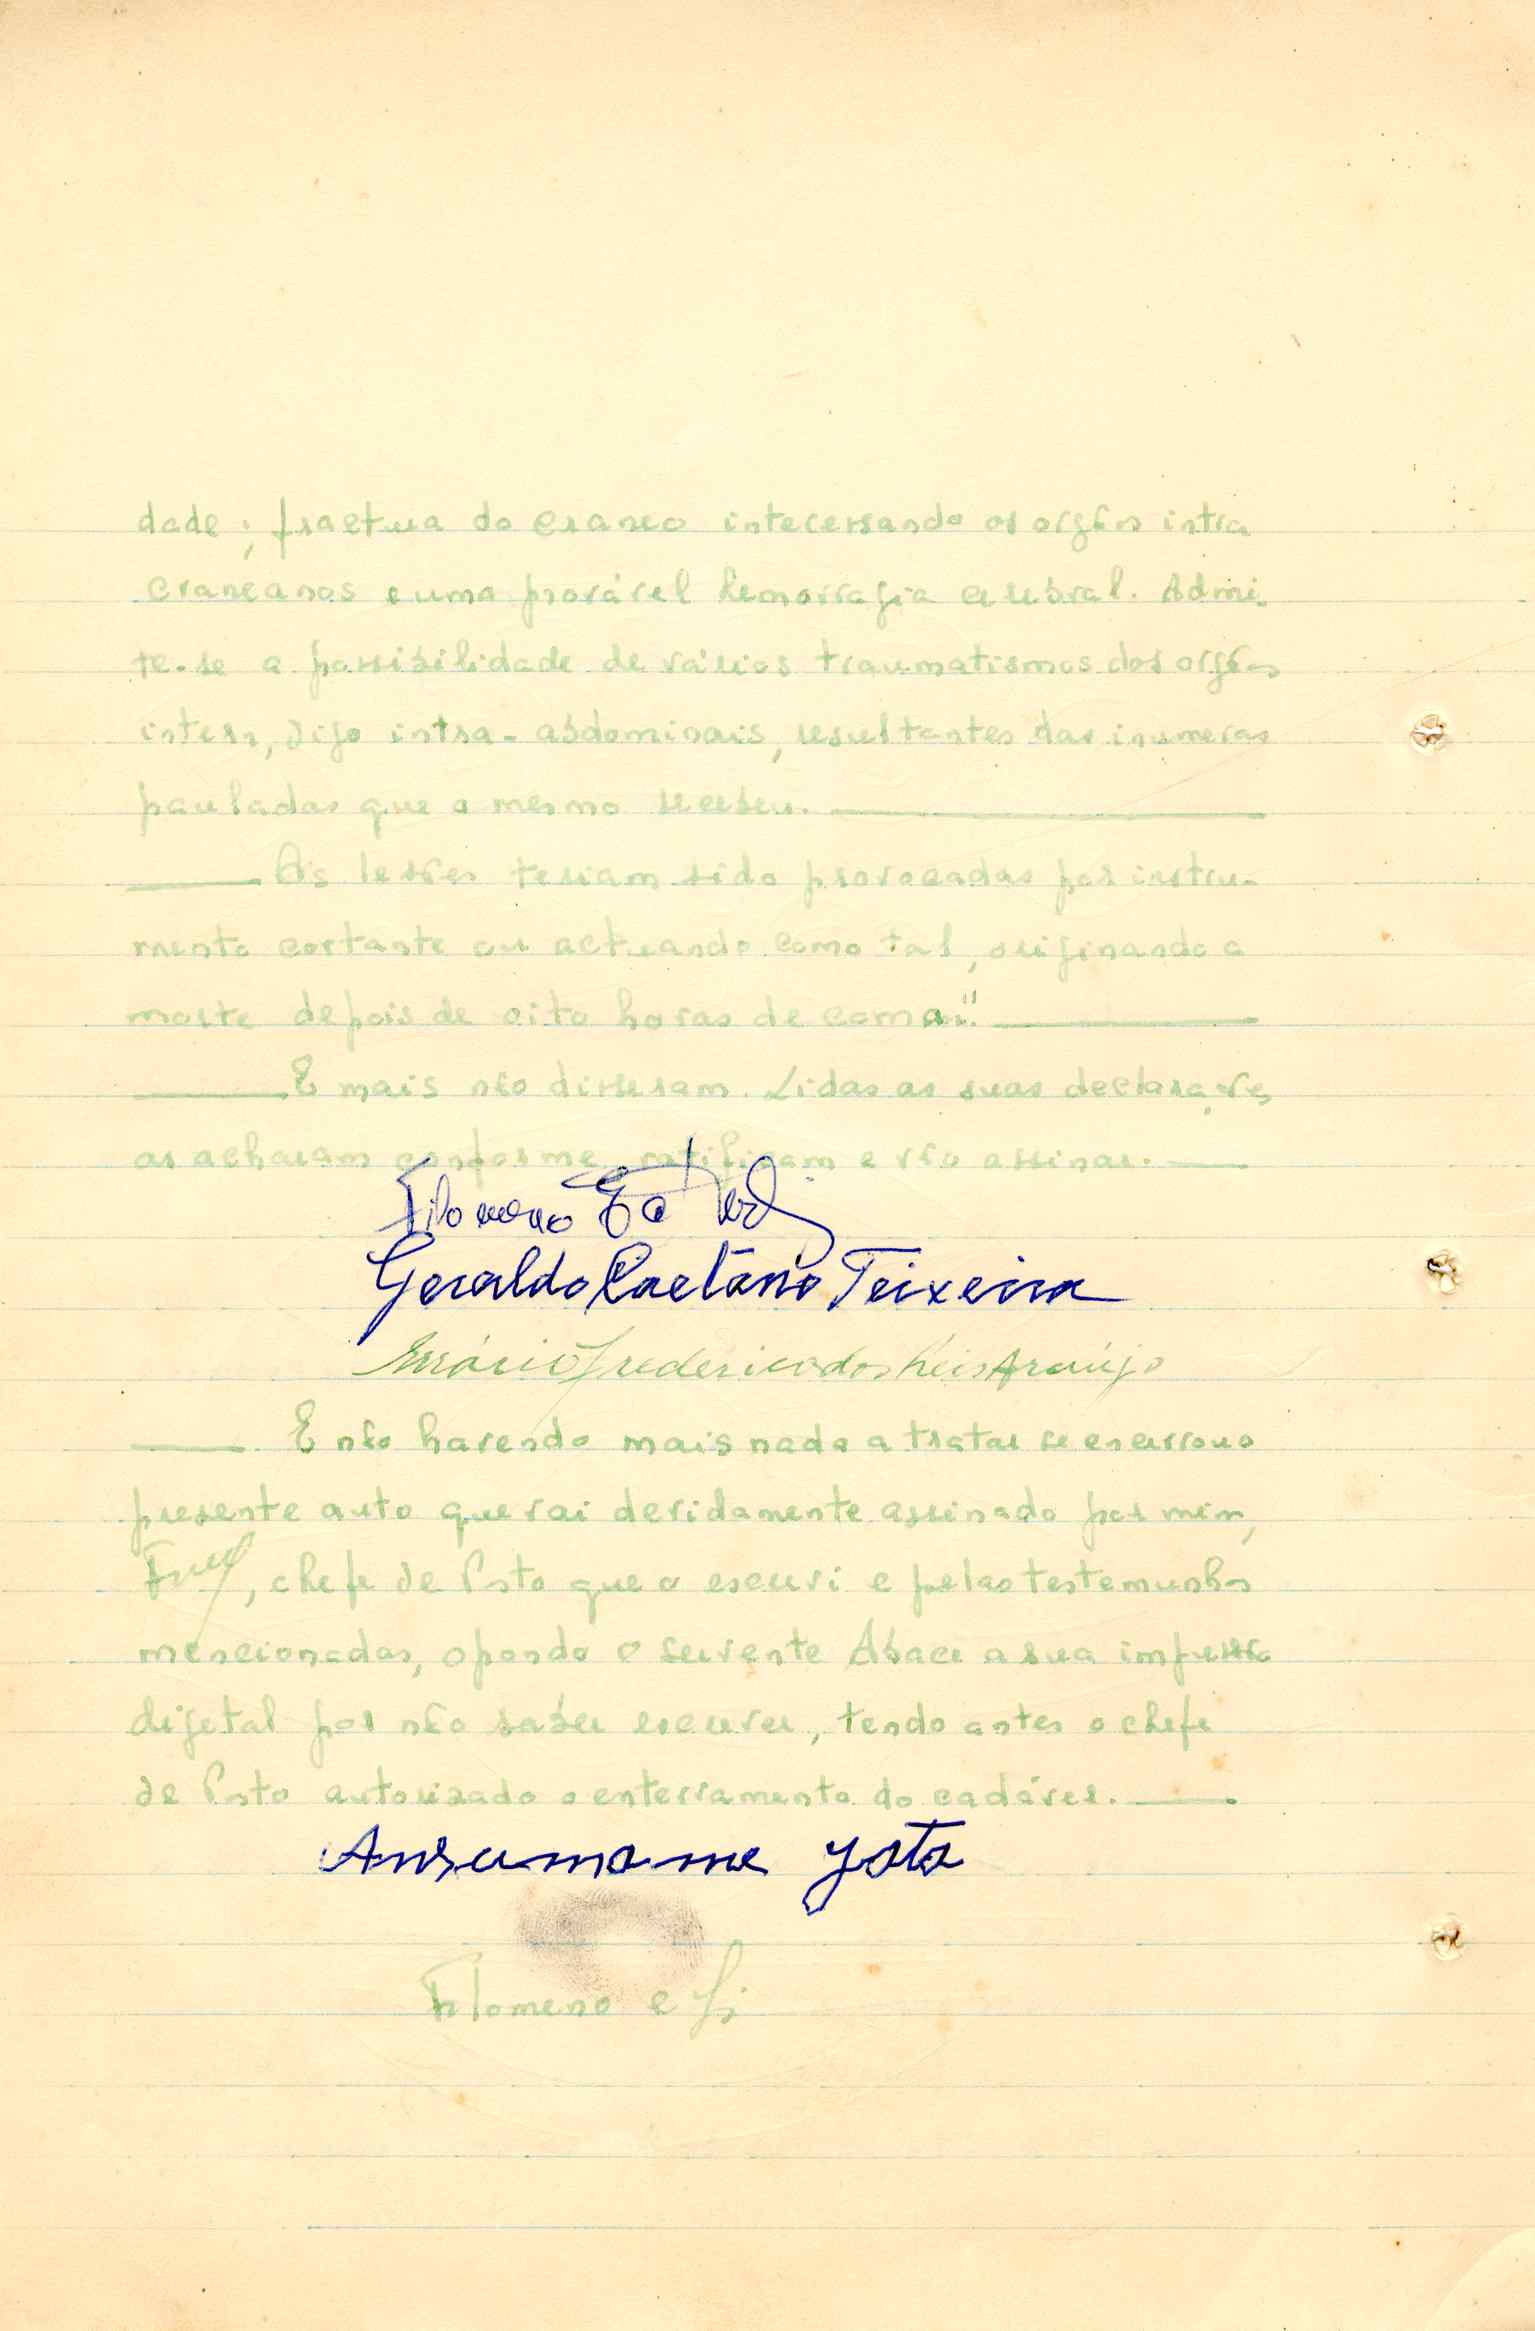 dade; fractura do craneo interessando os orgãos intra
craneanos e uma provável hemorragia cerebral. Admi-
te-se a possibilidade de vários traumatismos dos orgãos
intern, digo intra-abdominais, resultantes das inumeras
pauladas que o mesmo recebeu.
As lesões teriam sido provocadas por instru-
mento cortante ou actuando como tal, originando a
morte depois de oito horas de coma".
E mais não disseram. Lidas as suas declarações,
as acharam conforme, ratificam e vão assinar.
Filomeno
Geraldo Caetano Teixeira
Frederico dos Reis Araújo
E não havendo mais nada a tratar se encerrou o
presente auto que vai devidamente assinado por mim,
, chefe de Posto que o escrevi e pelas testemunhas
mencionadas, opondo o servente Abacu a sua impressão
digetal por não saber escrever, tendo antes o chefe
de Posto autorizado o enterramento do cadáver.
Ansumane
Filomeno e